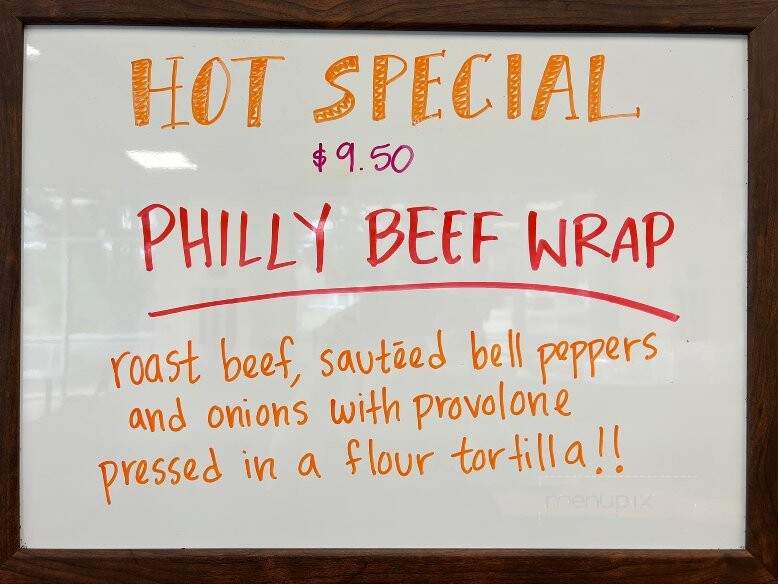 HOT SPECIAL
$9.50
PHILLY BEEF WRAP
roast beef, sautēed bell peppers
and onions with provolone
pressed in a flour tortilla!!
menupix